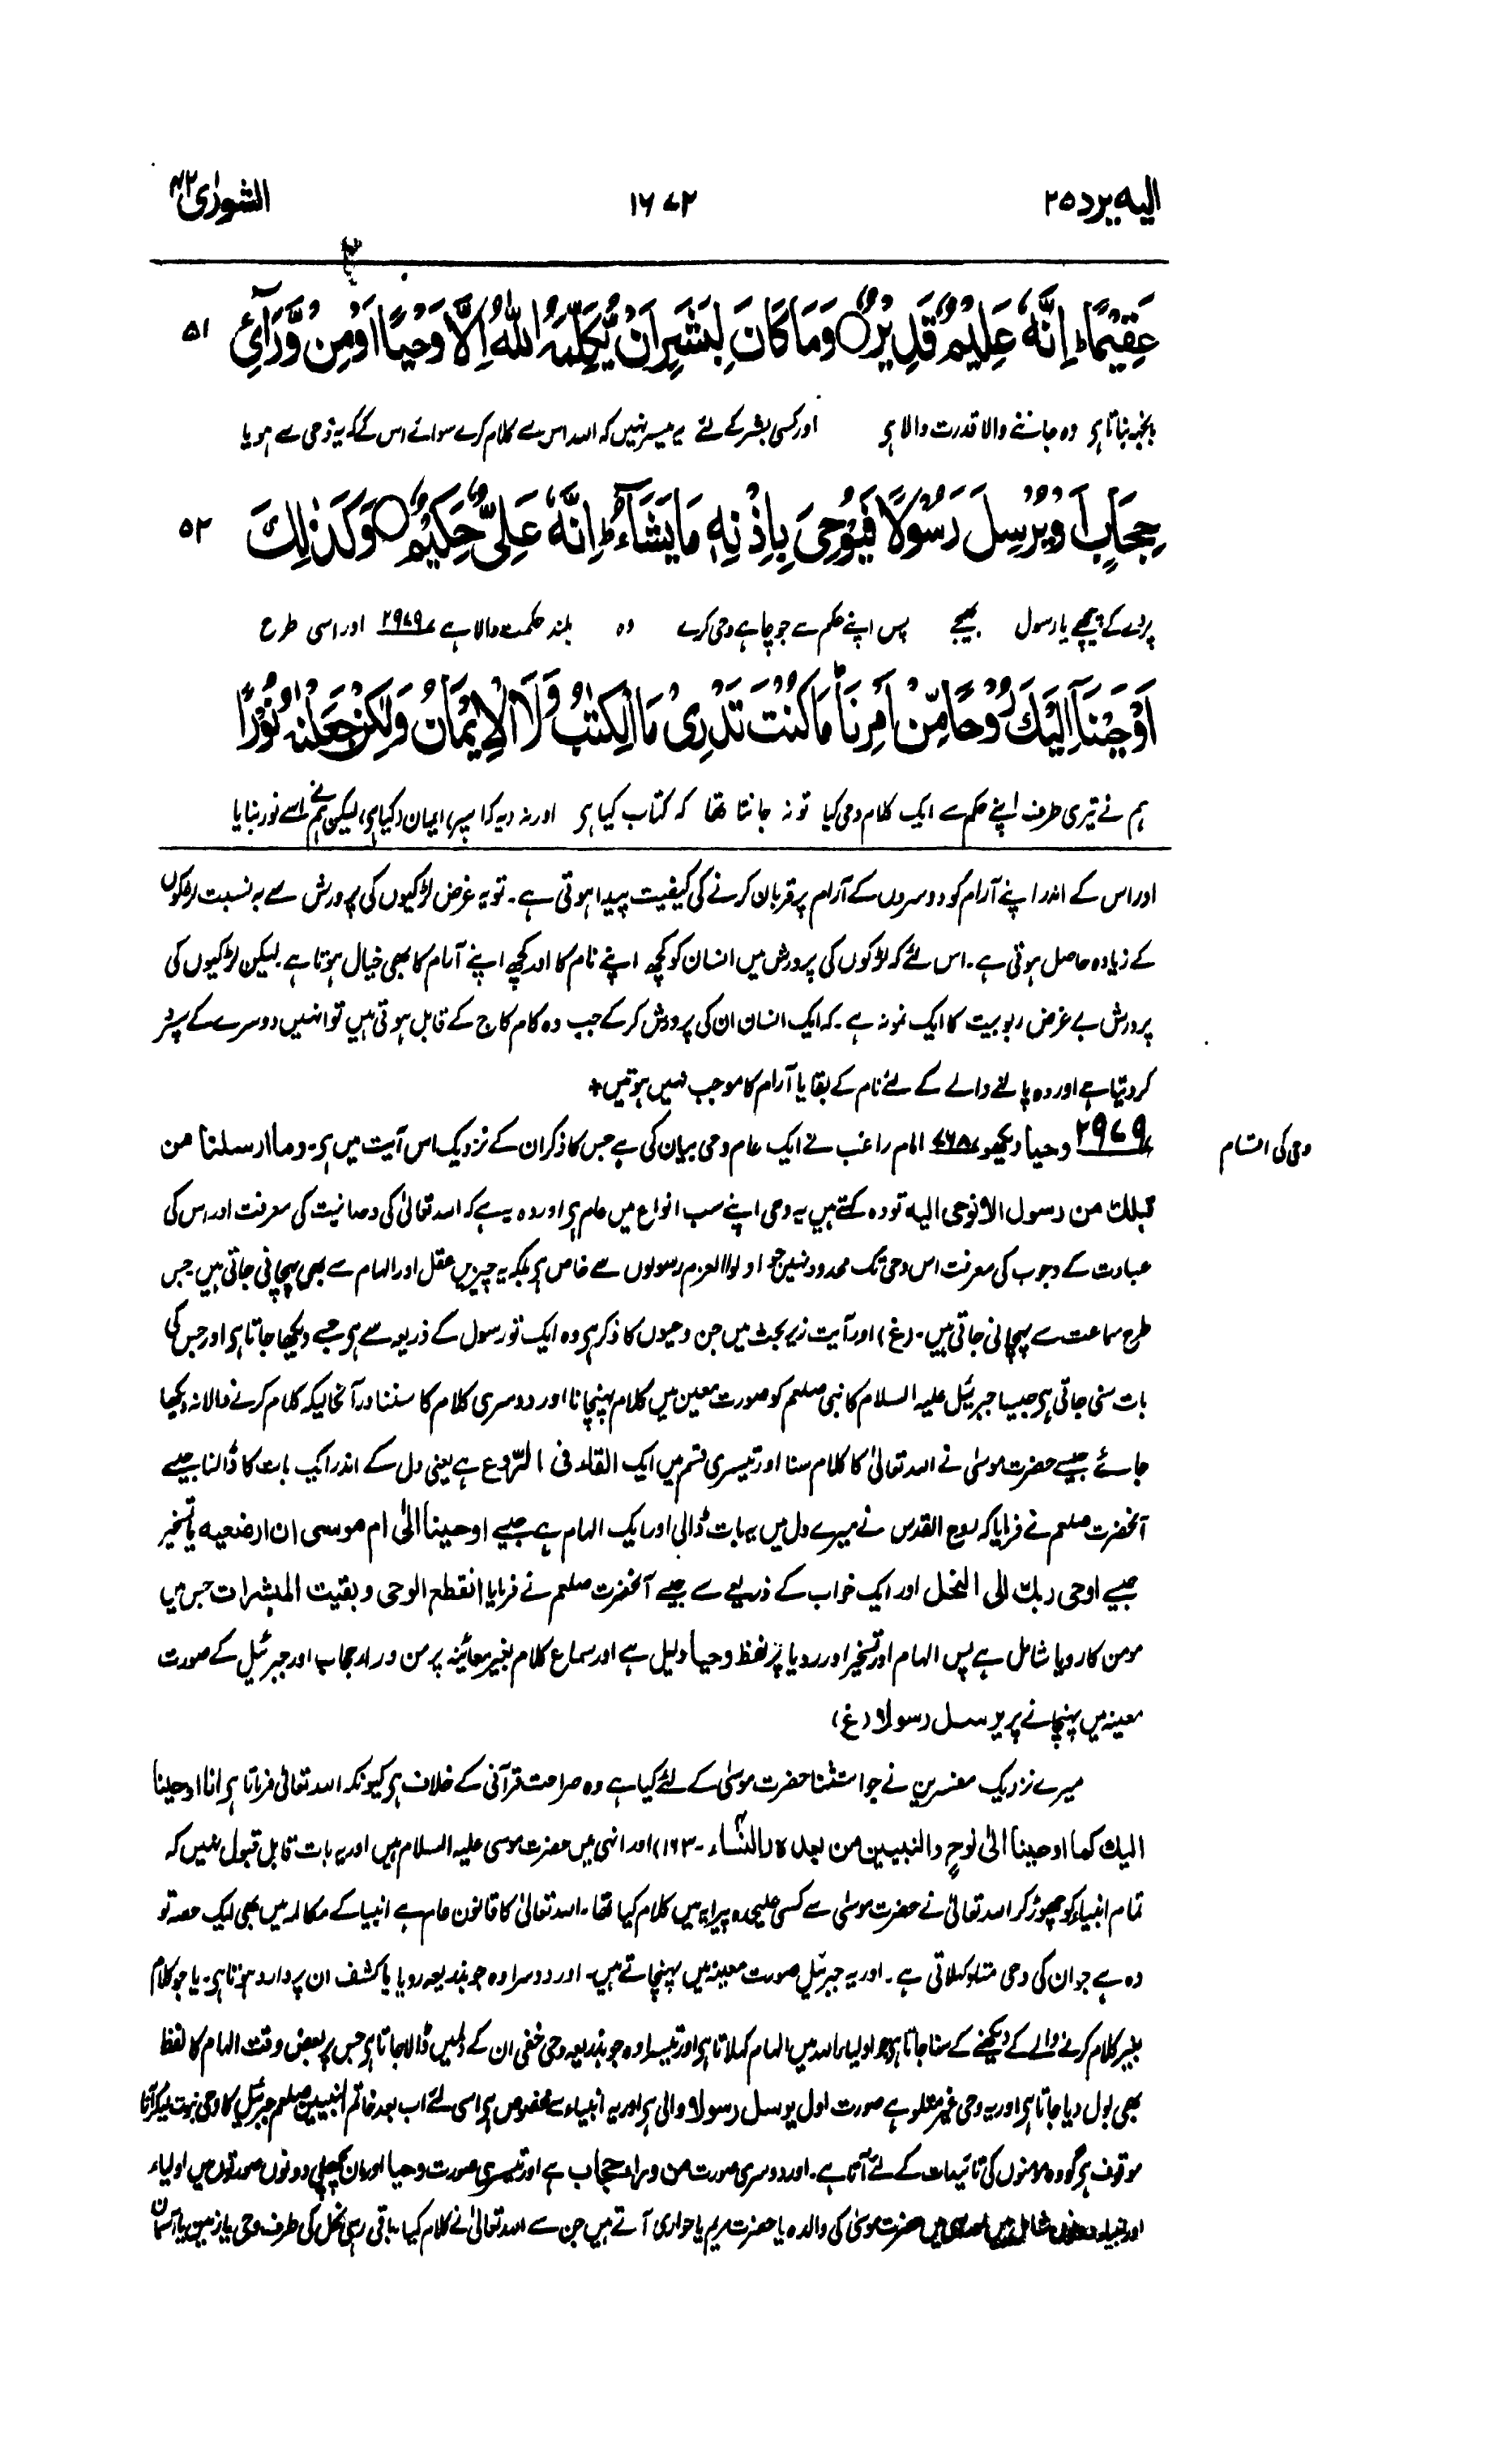 الیہ یرد ۲۵
۱۶۷۲
الشورٰی ۴۲
عَقِیْمًا ؕ اِنَّهٗ عَلِیْمٌ قَدِیْرٌ ○ وَمَا كَانَ لِبَشَرٍ اَنْ یُّكَلِّمَهُ اللّٰهُ اِلَّا وَحْیًا اَوْ مِنْ وَّرَآئِ ۵۱
بانجھ بناتا ہی وہ جاننے والا قدرت والا ہی اور کسی بشر کے لئے یہ میسر نہیں کہ اللہ اس سے کلام کرے سوائے اس کے کہ یہ وحی سے ہو یا
حِجَابٍ اَوْ یُرْسِلَ رَسُوْلًا فَیُوْحِیَ بِاِذْنِهٖ مَا یَشَآءُ ؕ اِنَّهٗ عَلِیٌّ حَكِیْمٌ ○ وَكَذٰلِكَ ۵۲
پردے کے پیچھے یا رسول بھیجے پس اپنے حکم سے جو چاہے وحی کرے وہ بلند حکمت والا ہے ۲۹۷۹ اور اسی طرح
اَوْحَیْنَاۤ اِلَیْكَ رُوْحًا مِّنْ اَمْرِنَا ؕ مَا كُنْتَ تَدْرِیْ مَا الْكِتٰبُ وَلَا الْاِیْمَانُ وَلٰكِنْ جَعَلْنٰهُ نُوْرًا
ہم نے تیری طرف اپنے حکم سے ایک کلام وحی کیا تو نہ جانتا تھا کہ کتاب کیا ہی اور نہ یہ کہ اسپر ایمان کیا ہی، لیکن ہم نے اسے نور بنایا
اور اس کے اندر اپنے آرام کو دوسروں کے آرام پر قربان کرنے کی کیفیت پیدا ہوتی ہے۔ تو یہ غرض لڑکیوں کی پرورش سے بہ نسبت لڑکوں
کے زیادہ حاصل ہوتی ہے۔ اس لئے کہ لڑکوں کی پرورش میں انسان کو کچھ اپنے نام کا اور کچھ اپنے آرام کا بھی خیال ہوتا ہے۔ لیکن لڑکیوں کی
پرورش بے غرض ربوبیت کا ایک نمونہ ہے۔ کہ ایک انسان ان کی پرورش کر کے جب وہ کام کاج کے قابل ہوتی ہیں تو انہیں دوسرے کے سپرد
کر دیتا ہے اور وہ پالنے والے کے لئے نام کے بقا یا آرام کا موجب نہیں ہوتیں +
وحی کی اقسام
۲۹۷۹ وحیا دیکھو امام راغب نے ایک عام وحی بیان کی ہے جس کا ذکر ان کے نزدیک اس آیت میں ہی۔ وما ارسلنا من
قبلك من رسول الا نوحی الیه تو وہ کہتے ہیں یہ وحی اپنے سب انواع میں عام ہی اور وہ یہ ہے کہ اللہ تعالیٰ کی وحدانیت کی معرفت اور اس کی
عبادت کے وجوب کی معرفت اس وحی تک محدود نہیں جو اولوا العزم رسولوں سے خاص ہی بلکہ یہ چیزیں عقل اور الہام سے بھی پہچانی جاتی ہیں جس
طرح سماعت سے پہچانی جاتی ہیں۔ (غ) اور آیت زیر بحث میں جن وحیوں کا ذکر ہی وہ ایک تو رسول کے ذریعہ سے ہی جسے دیکھا جاتا ہی اور جس کی
بات سنی جاتی ہی جیسا جبرئیل علیہ السلام کا نبی صلعم کو صورت معین میں کلام پہنچانا اور دوسری کلام کا سننا درآنحالیکہ کلام کرنے والا نہ دیکھا
جائے جیسے حضرت موسیٰ نے اللہ تعالیٰ کا کلام سنا اور تیسری قسم میں ایک القاء فی الرّوع ہے یعنی دل کے اندر ایک بات کا ڈالنا جیسے
آنحضرت صلعم نے فرمایا کہ روح القدس نے میرے دل میں یہ بات ڈالی اور ایک الہام ہے جیسے اوحینا الی ام موسی ان ارضعیه یا تسخیر
جیسے اوحی ربك الی النحل اور ایک خواب کے ذریعے سے جیسے آنحضرت صلعم نے فرمایا انقطع الوحی و بقیت المبشرات جس میں
مومن کا رویا شامل ہے پس الہام اور تسخیر اور رویا پر لفظ وحیا دلیل ہے اور سماع کلام بغیر معائنہ پر من وراء حجاب اور جبرئیل کے صورت
معینہ میں پہنچانے پر یرسل رسولا (غ)
میرے نزدیک مفسرین نے جو استثنا حضرت موسیٰ کے لئے کیا ہے وہ صراحت قرآنی کے خلاف ہی کیونکہ اللہ تعالیٰ فرماتا ہی انا اوحینا
الیك كما اوحینا الی نوح والنبیین من بعدہ (النساء ۴۔۱۶۳) اور انہی میں حضرت موسی علیہ السلام ہیں اور یہ بات قابل قبول نہیں کہ
تمام انبیاء کو چھوڑ کر اللہ تعالیٰ نے حضرت موسیٰ سے کسی علیحدہ پیرایہ میں کلام کیا تھا۔ اللہ تعالیٰ کا قانون عام ہے انبیا کے مکالمہ میں بھی ایک حصہ تو
وہ ہے جو ان کی وحی متلو کہلاتی ہے۔ اور یہ جبرئیل صورت معینہ میں پہنچاتے ہیں۔ اور دوسرا وہ جو بذریعہ رویا یا کشف ان پر وارد ہوتا ہی۔ یا جو کلام
بغیر کلام کرنے والے کے دیکھنے کے سنا جاتا ہی جو اولیاء اللہ میں الہام کہلاتا ہی اور تیسرا وہ جو بذریعہ وحی خفی ان کے دلمیں ڈالا جاتا ہی جس پر بعض وقت الہام کا لفظ
بھی بول دیا جاتا ہی اور یہ وحی غیر متلو ہے صورت اول یرسل رسولا والی ہی اور یہ انبیاء سے مخصوص ہی اسی لئے اب بعد خاتم النبیین صلعم جبرئیل کا وحی نبوت لیکر آنا
موقوف ہی گو وہ مومنوں کی تائیدات کے لئے آتا ہے۔ اور دوسری صورت من وراء حجاب ہے اور تیسری صورت وحیا اور ان پچھلی دونوں صورتوں میں اولیاء
اور انبیاء دونوں شامل ہیں اور اسی میں حضرت موسیٰ کی والدہ یا حضرت مریم یا حواری آتے ہیں جن سے اللہ تعالیٰ نے کلام کیا۔ باقی رہی نحل کی طرف وحی یا زمین یا آسمان